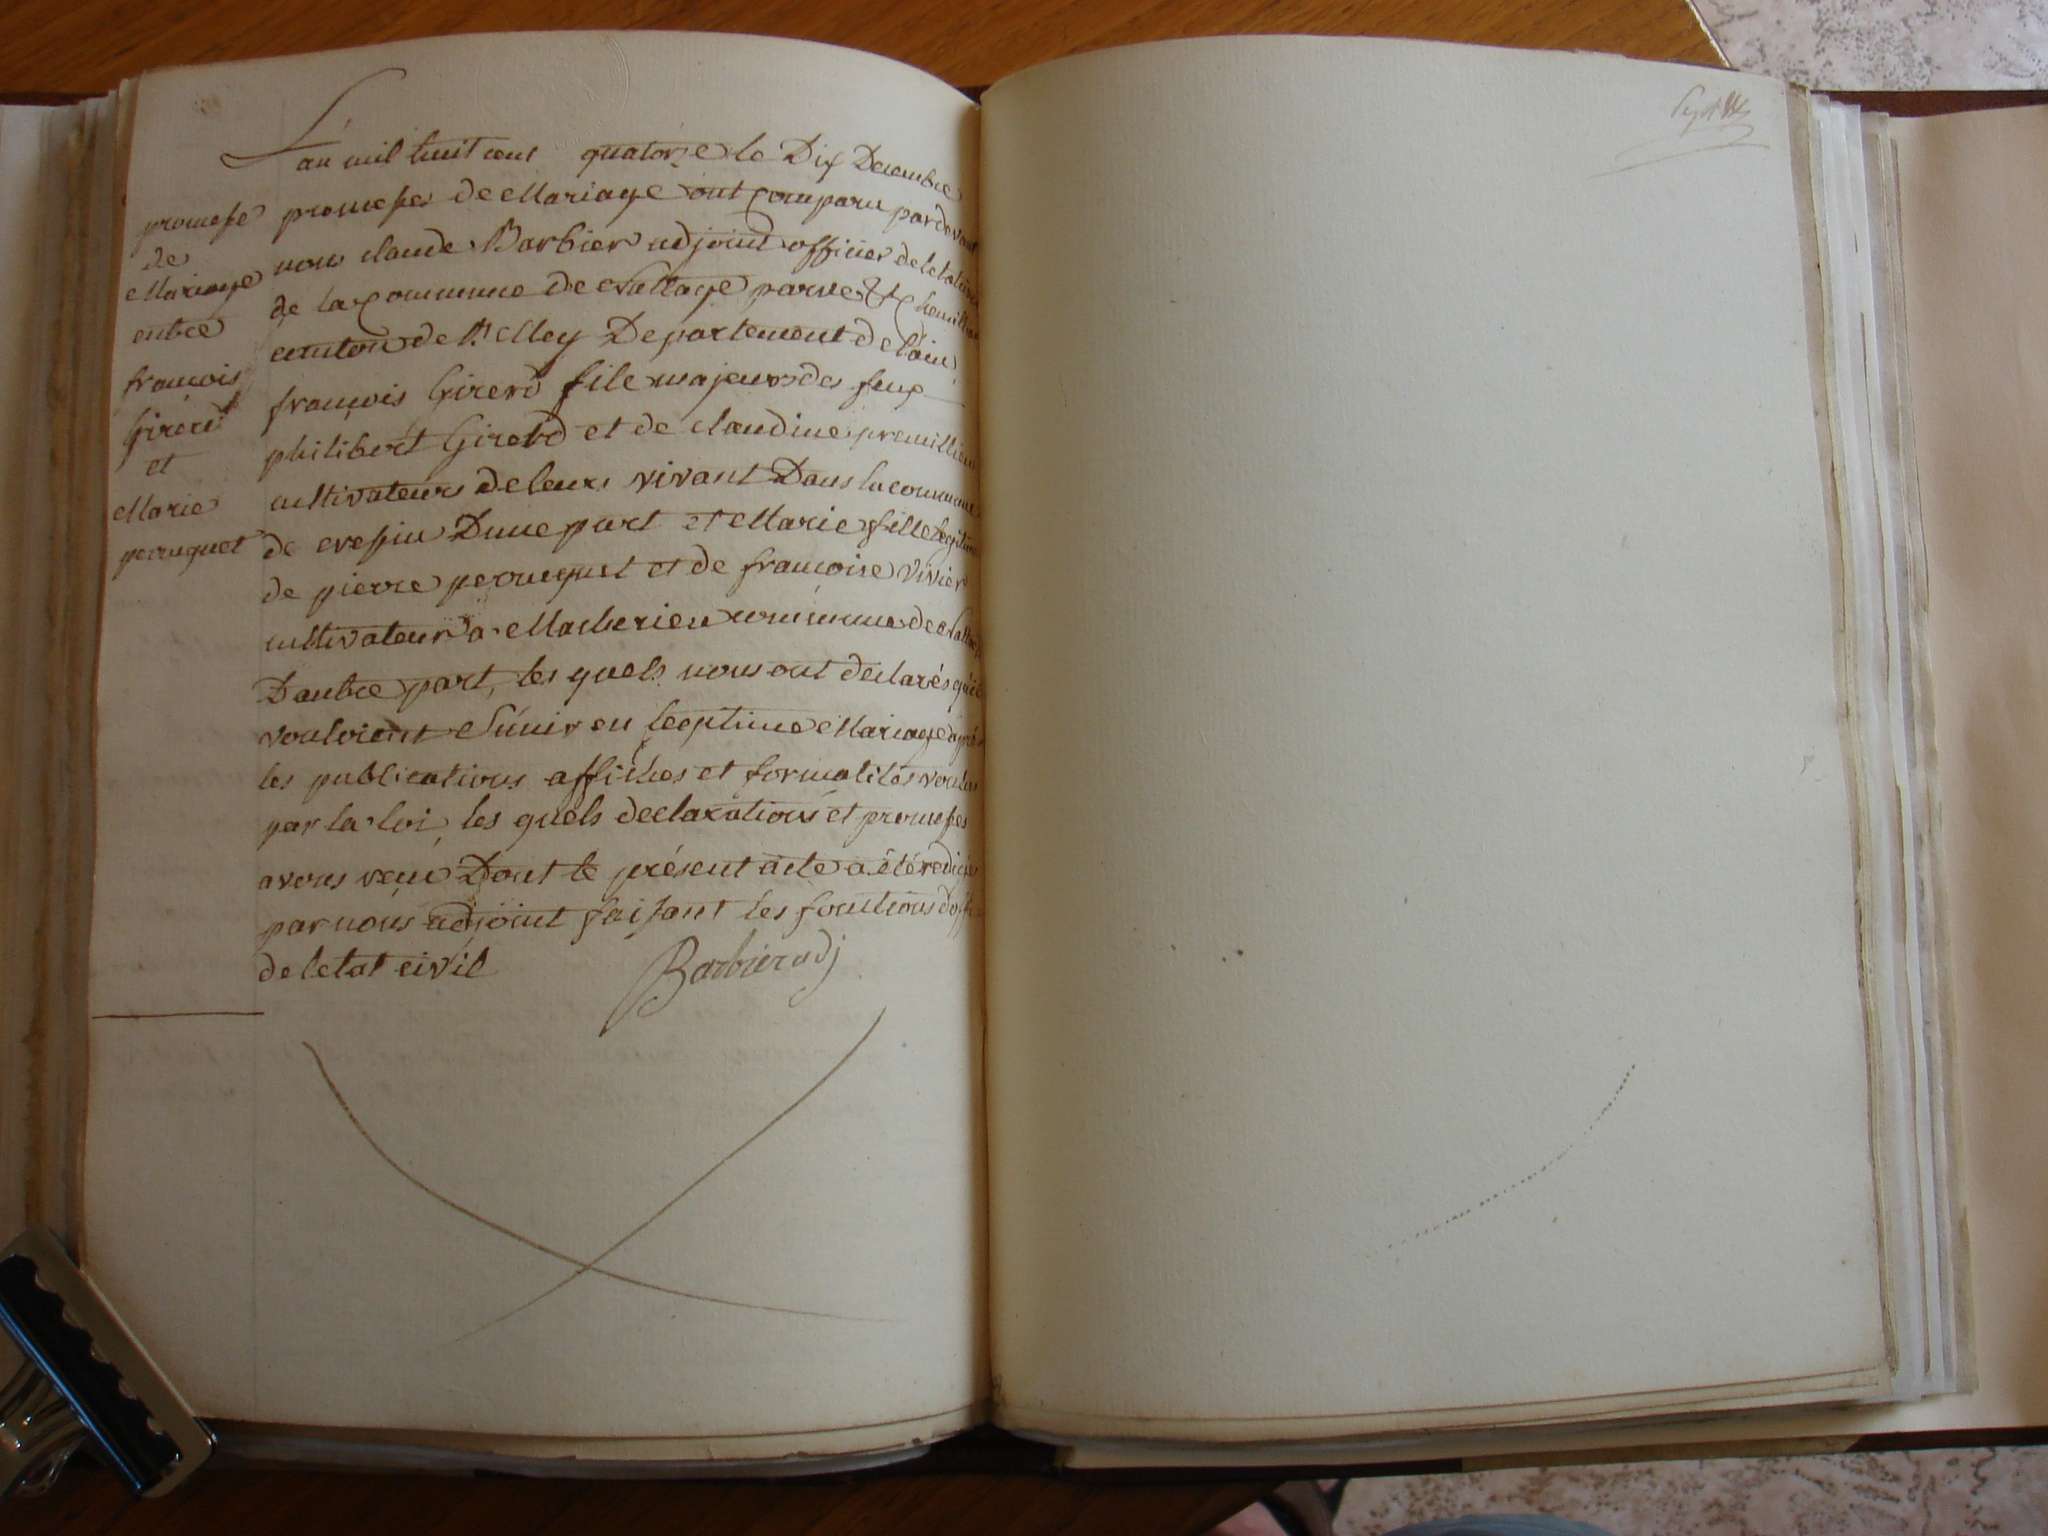 promesse
de
Mariage
entre
françois
Girerd
et
Marie
perruquet
L'an mil huit cent quatorze le Dix Decembre
promesses de Mariage ont comparu pardevant
nous claude Barbier adjoint officier de letat civil
de la Commune de
canton de Departement de l'ain
françois Girerd fils majeur des feux
philibert Girerd et de claudine premillieu
cultivateurs de leurs vivant Dans la commune
de evesfin Dune part et Marie fille legitime
de pierre perruquet et de francoise Vivier
cultivateur a commune de
Dautre part, les quels nous ont declarés quils
vouloient Sunir en legitime Mariage après
les publications affiches et formalités voulus
par la loi les quels declarations et promesses
avons reçu Dont le présent acte a été redigé
par nous adjoint faisant les fonctions
de letat civil
Barbier adj